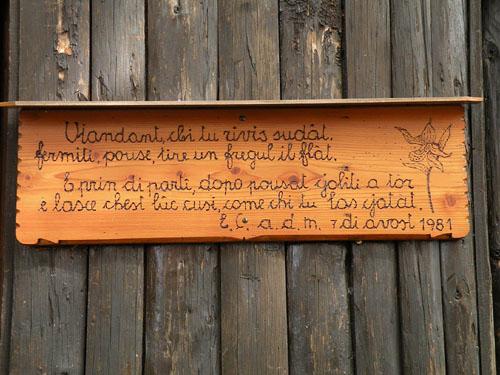 Viandant, chi tu rivis sudât,
fermiti, pouse, tire un fregul il flât.
E prin di partì, dopo pousat çoliti a tor
e lasce chest lûc cusì, come chi tu las çatat.
E. C. a. d. m. 7 di avost 1981